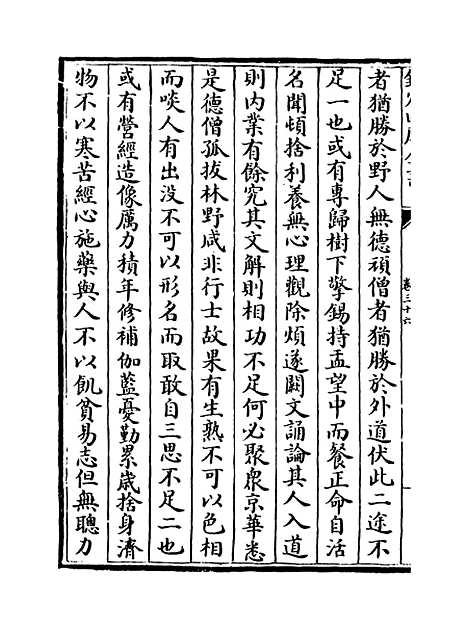 卷三十六
者猶勝於野人無德頑僧者猶勝於外道伏此二途不
足一也或有專歸樹下擎錫持盂望中而餐正命自活
名聞頓捨利養無心理觀除煩遂闕文誦論其人入道
則内業有餘究其文解則相功不足何必聚衆京華悉
是德僧孤拔林野咸非行士故果有生熟不可以色相
而啖人有出没不可以形名而取敢自三思不足二也
或有營經造像厲力積年修補伽藍憂勤累歳捨身濟
物不以寒苦經心施藥與人不以飢貧易志但無聰力